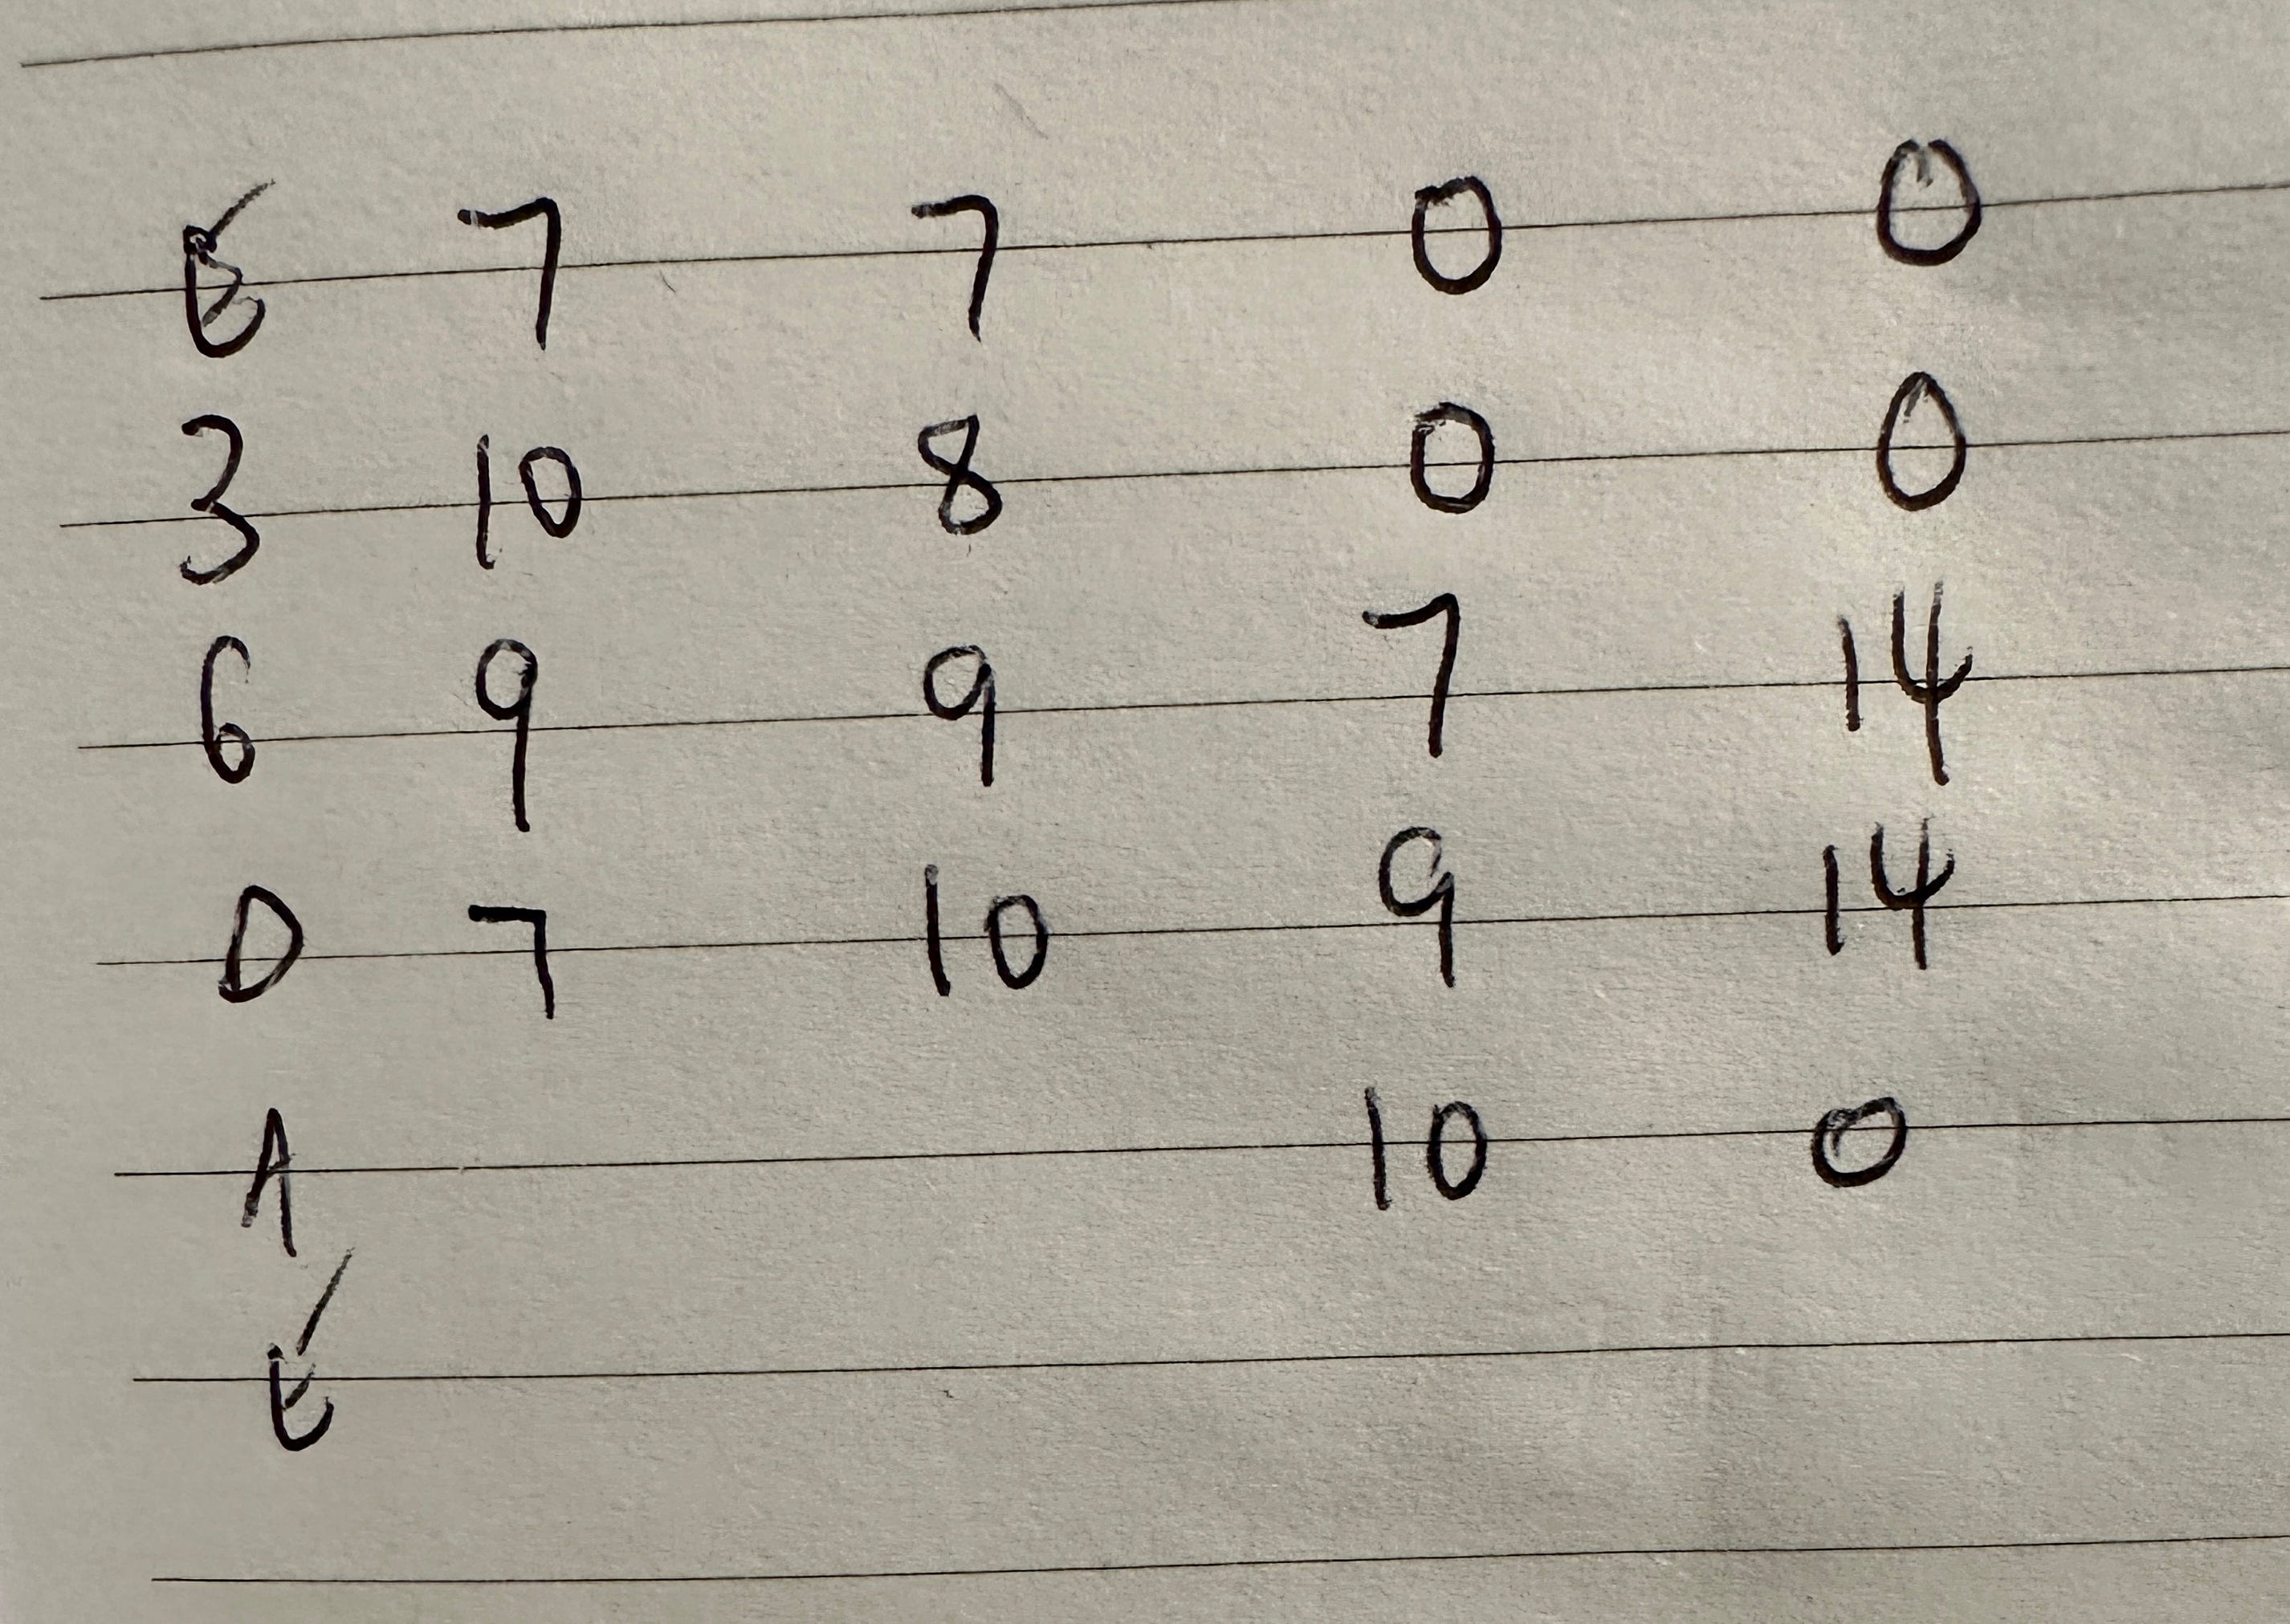 7 7 0 0
3 10 8 0 0
6 9 9 7 14
D 7 10 9 14
A 10 0